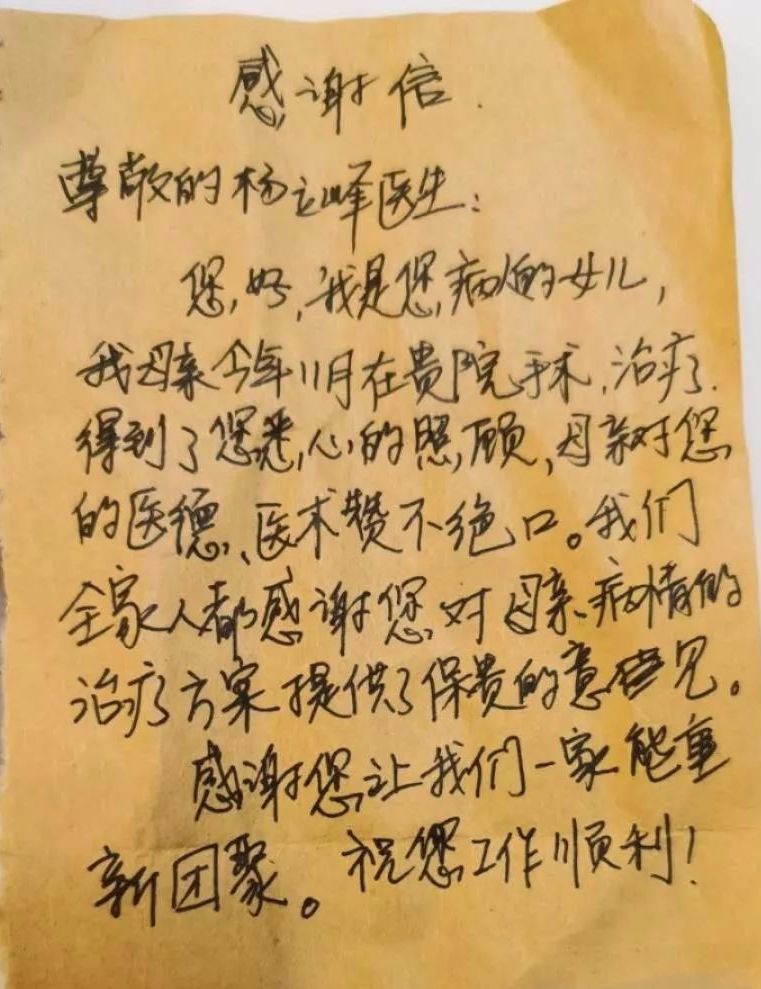 感谢信.
尊敬的杨立峰医生：
您好，我是您病人的女儿，
我母亲今年11月在贵院手术，治疗.
得到了您悉心的照顾，母亲对您
的医德、医术赞不绝口。我们
全家人都感谢您对母亲病情的
治疗方案提供了保贵的意见。
感谢您让我们一家能重
新团聚。祝您工作顺利！